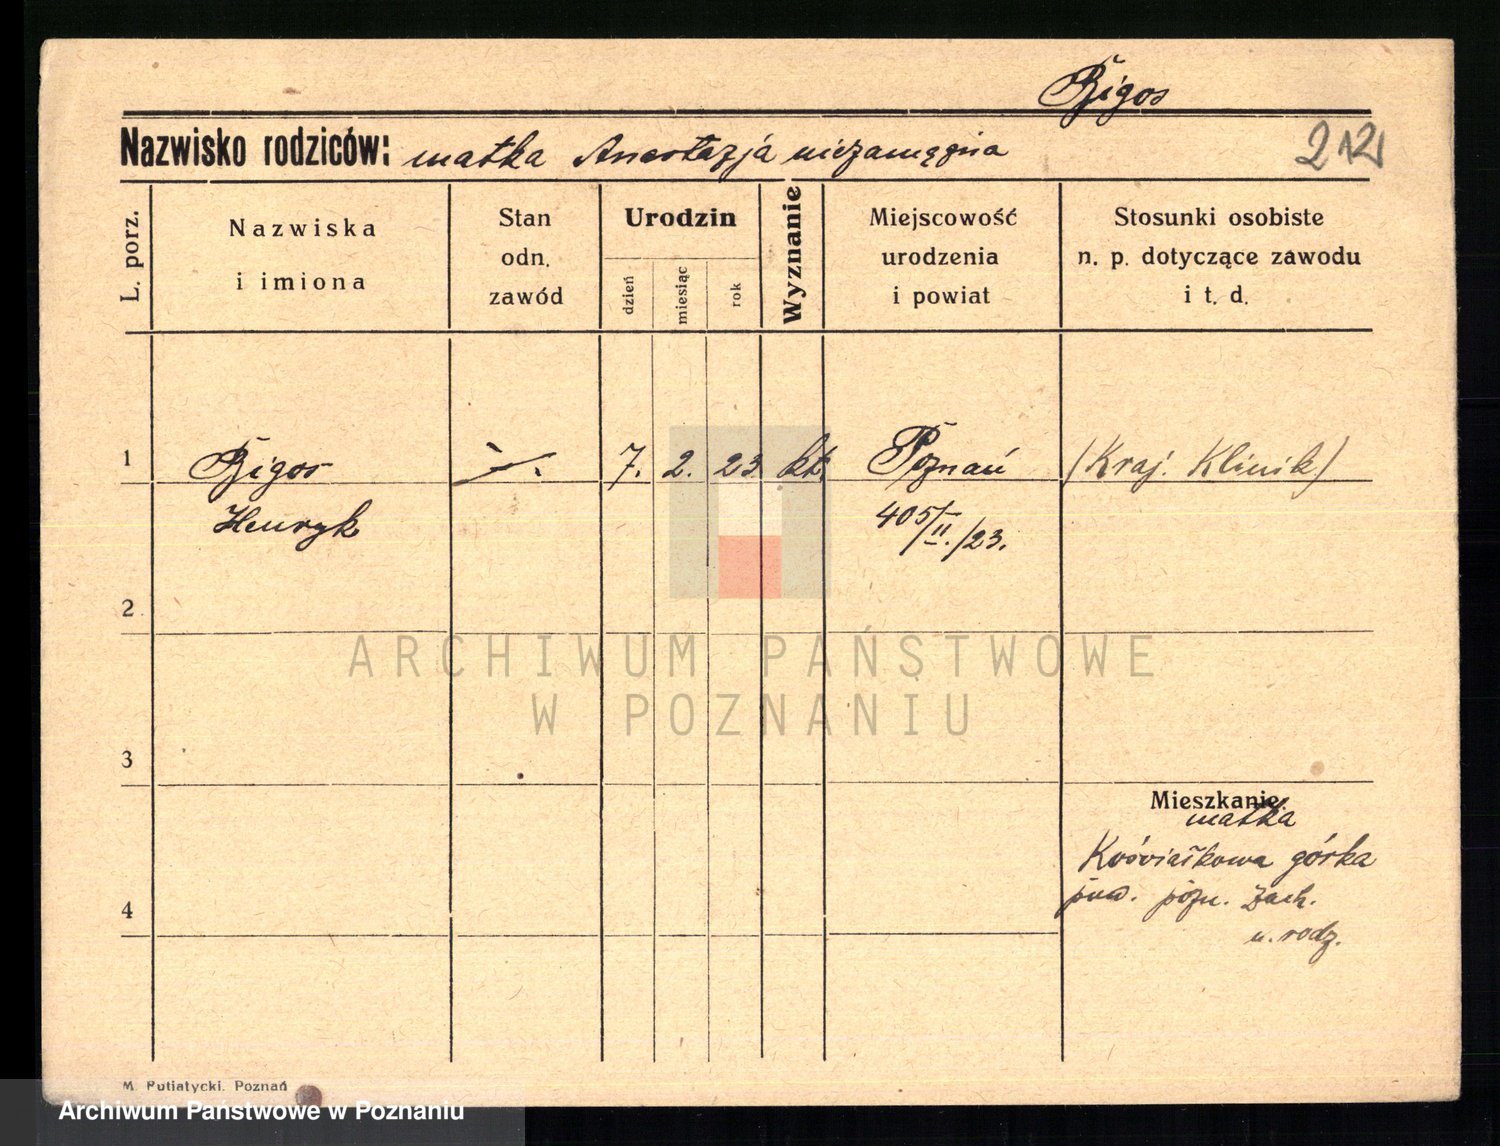 Bigos
Nazwisko rodziców: matka Anastazja niezamężna
212
L. porz.
Nazwiska
i imiona
Stan
odn.
zawód
Urodzin
dzień
miesiąc
rok
Wyznanie
Miejscowość
urodzenia
i powiat
Stosunki osobiste
n. p. dotyczące zawodu
i t. d.
1 Bigos 7. 2. 23 kt. Poznań (Kraj. Klinik)
Henryk 405/II./23.
2
3
Mieszkanie:
matka
górka
4 pow. pozn. Zach.
u. rodz.
ARCHIWUM PAŃSTWOWE
W POZNANIU
M. Putiatycki, Poznań
Archiwum Państwowe w Poznaniu